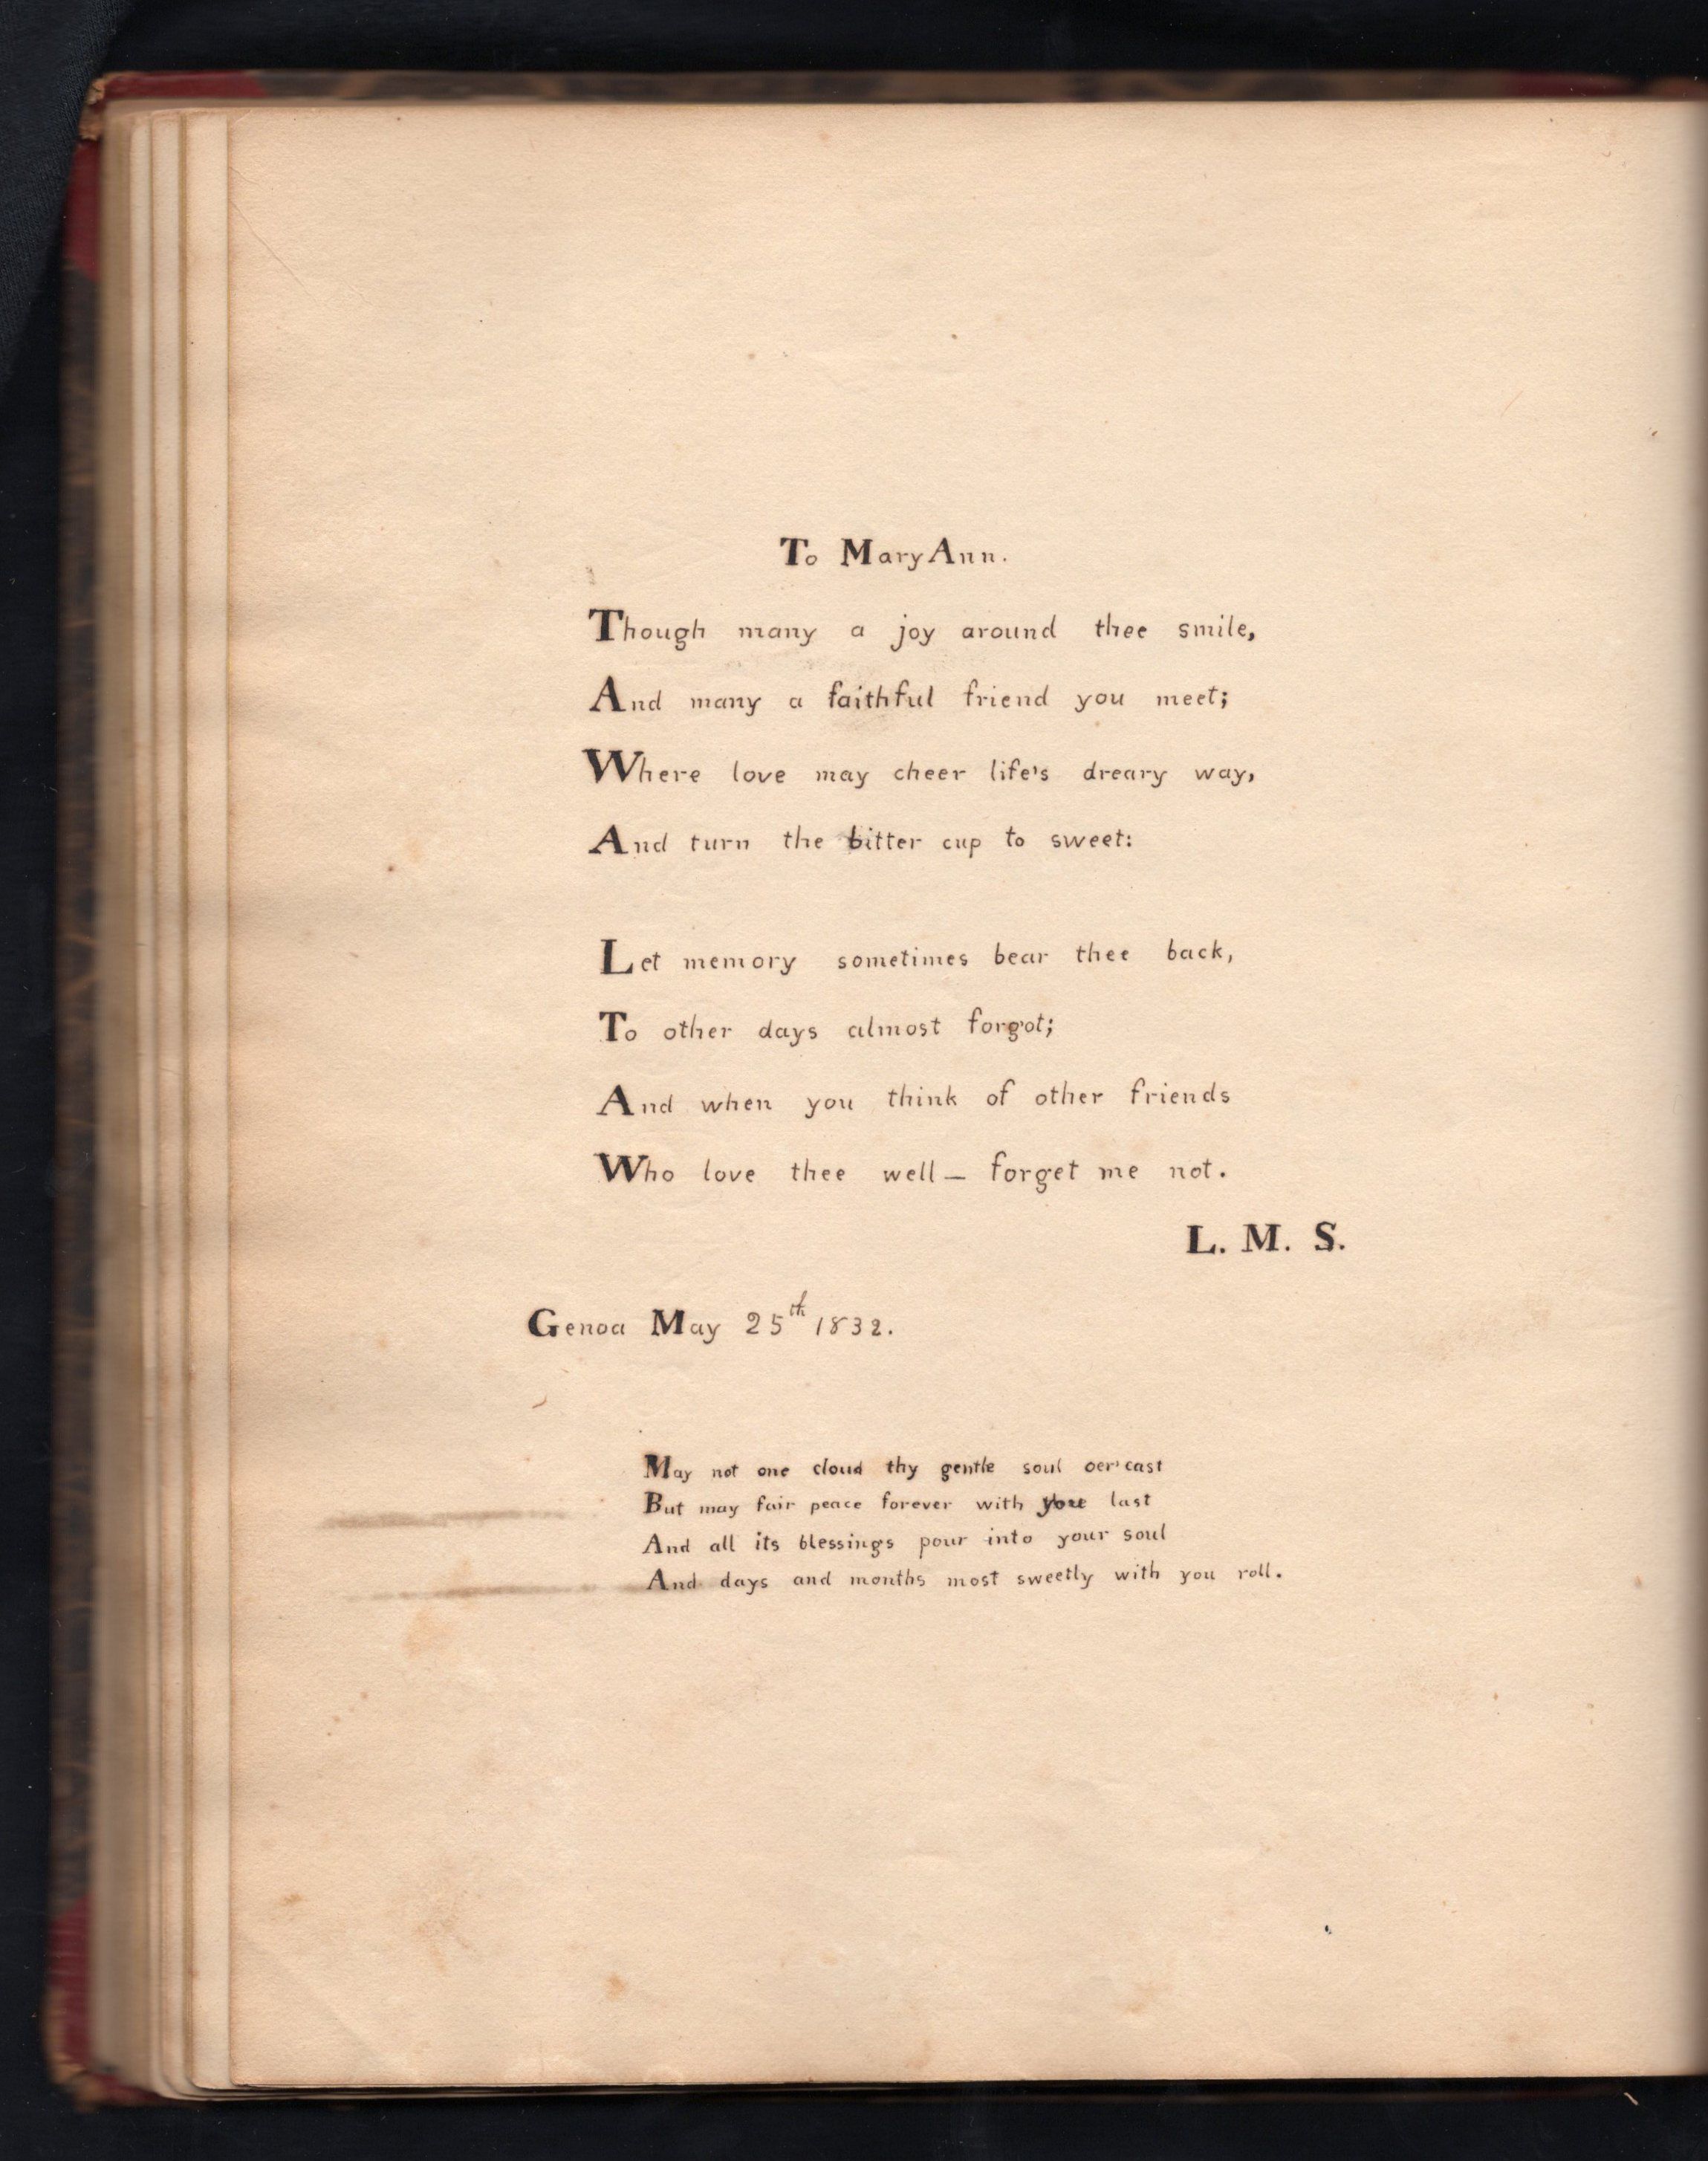 To Mary Ann.
Though many a joy around thee smile,
And many a faithful friend you meet;
Where love may cheer life's dreary way,
And turn the bitter cup to sweet:
Let memory sometimes bear thee back,
To other days almost forgot;
And when you think of other friends
Who love thee well — forget me not.
L. M. S.
Genoa May 25th 1832.
May not one cloud thy gentle soul oer'cast
But may fair peace forever with you last
And all its blessings pour into your soul
And days and months most sweetly with you roll.